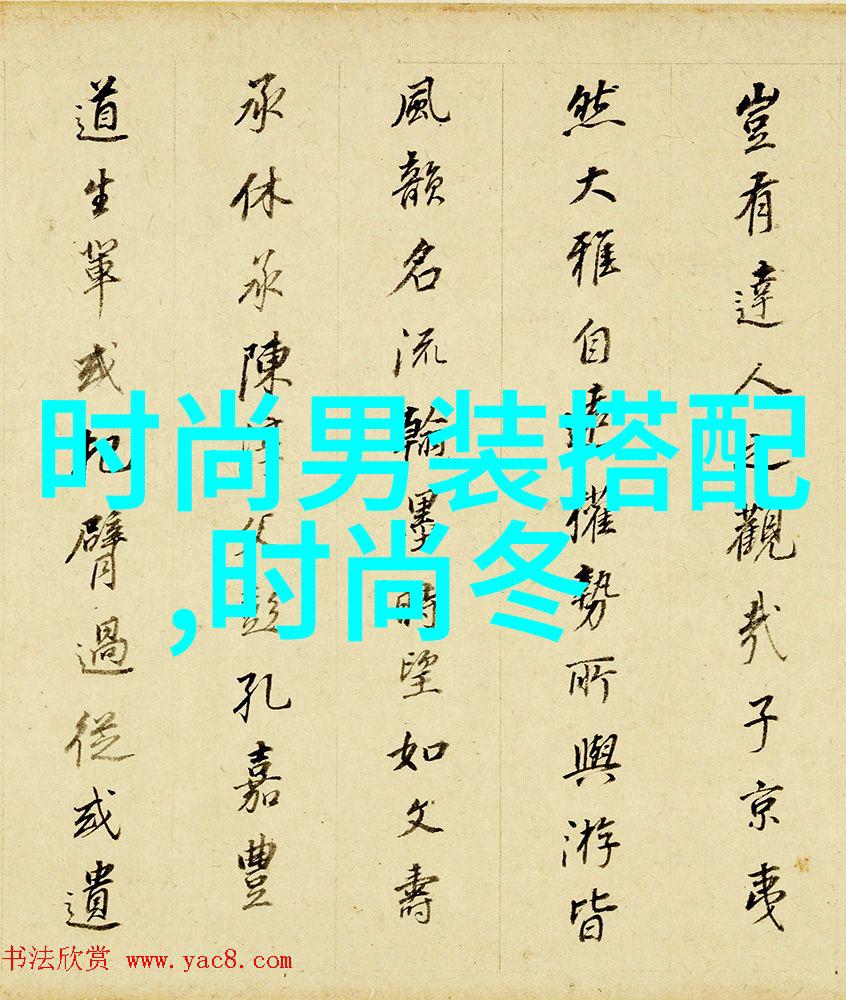 豈有達人之觀哉子京夷
然大雅自遠權勢所與游皆
風韻名流翰墨時望如文壽
承休承陳淳父彭孔嘉豐
道生輩或把臂過從或遺
时尚男装搭配
,时尚冬
书法欣赏 www.yac8.com